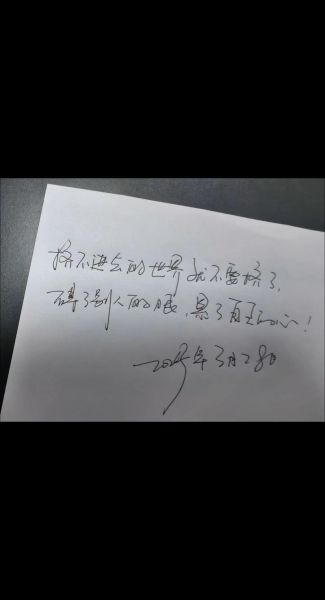 挤不进去的世界就不要挤了,
碍了别人的眼,累了自己的心!
2025年3月28日